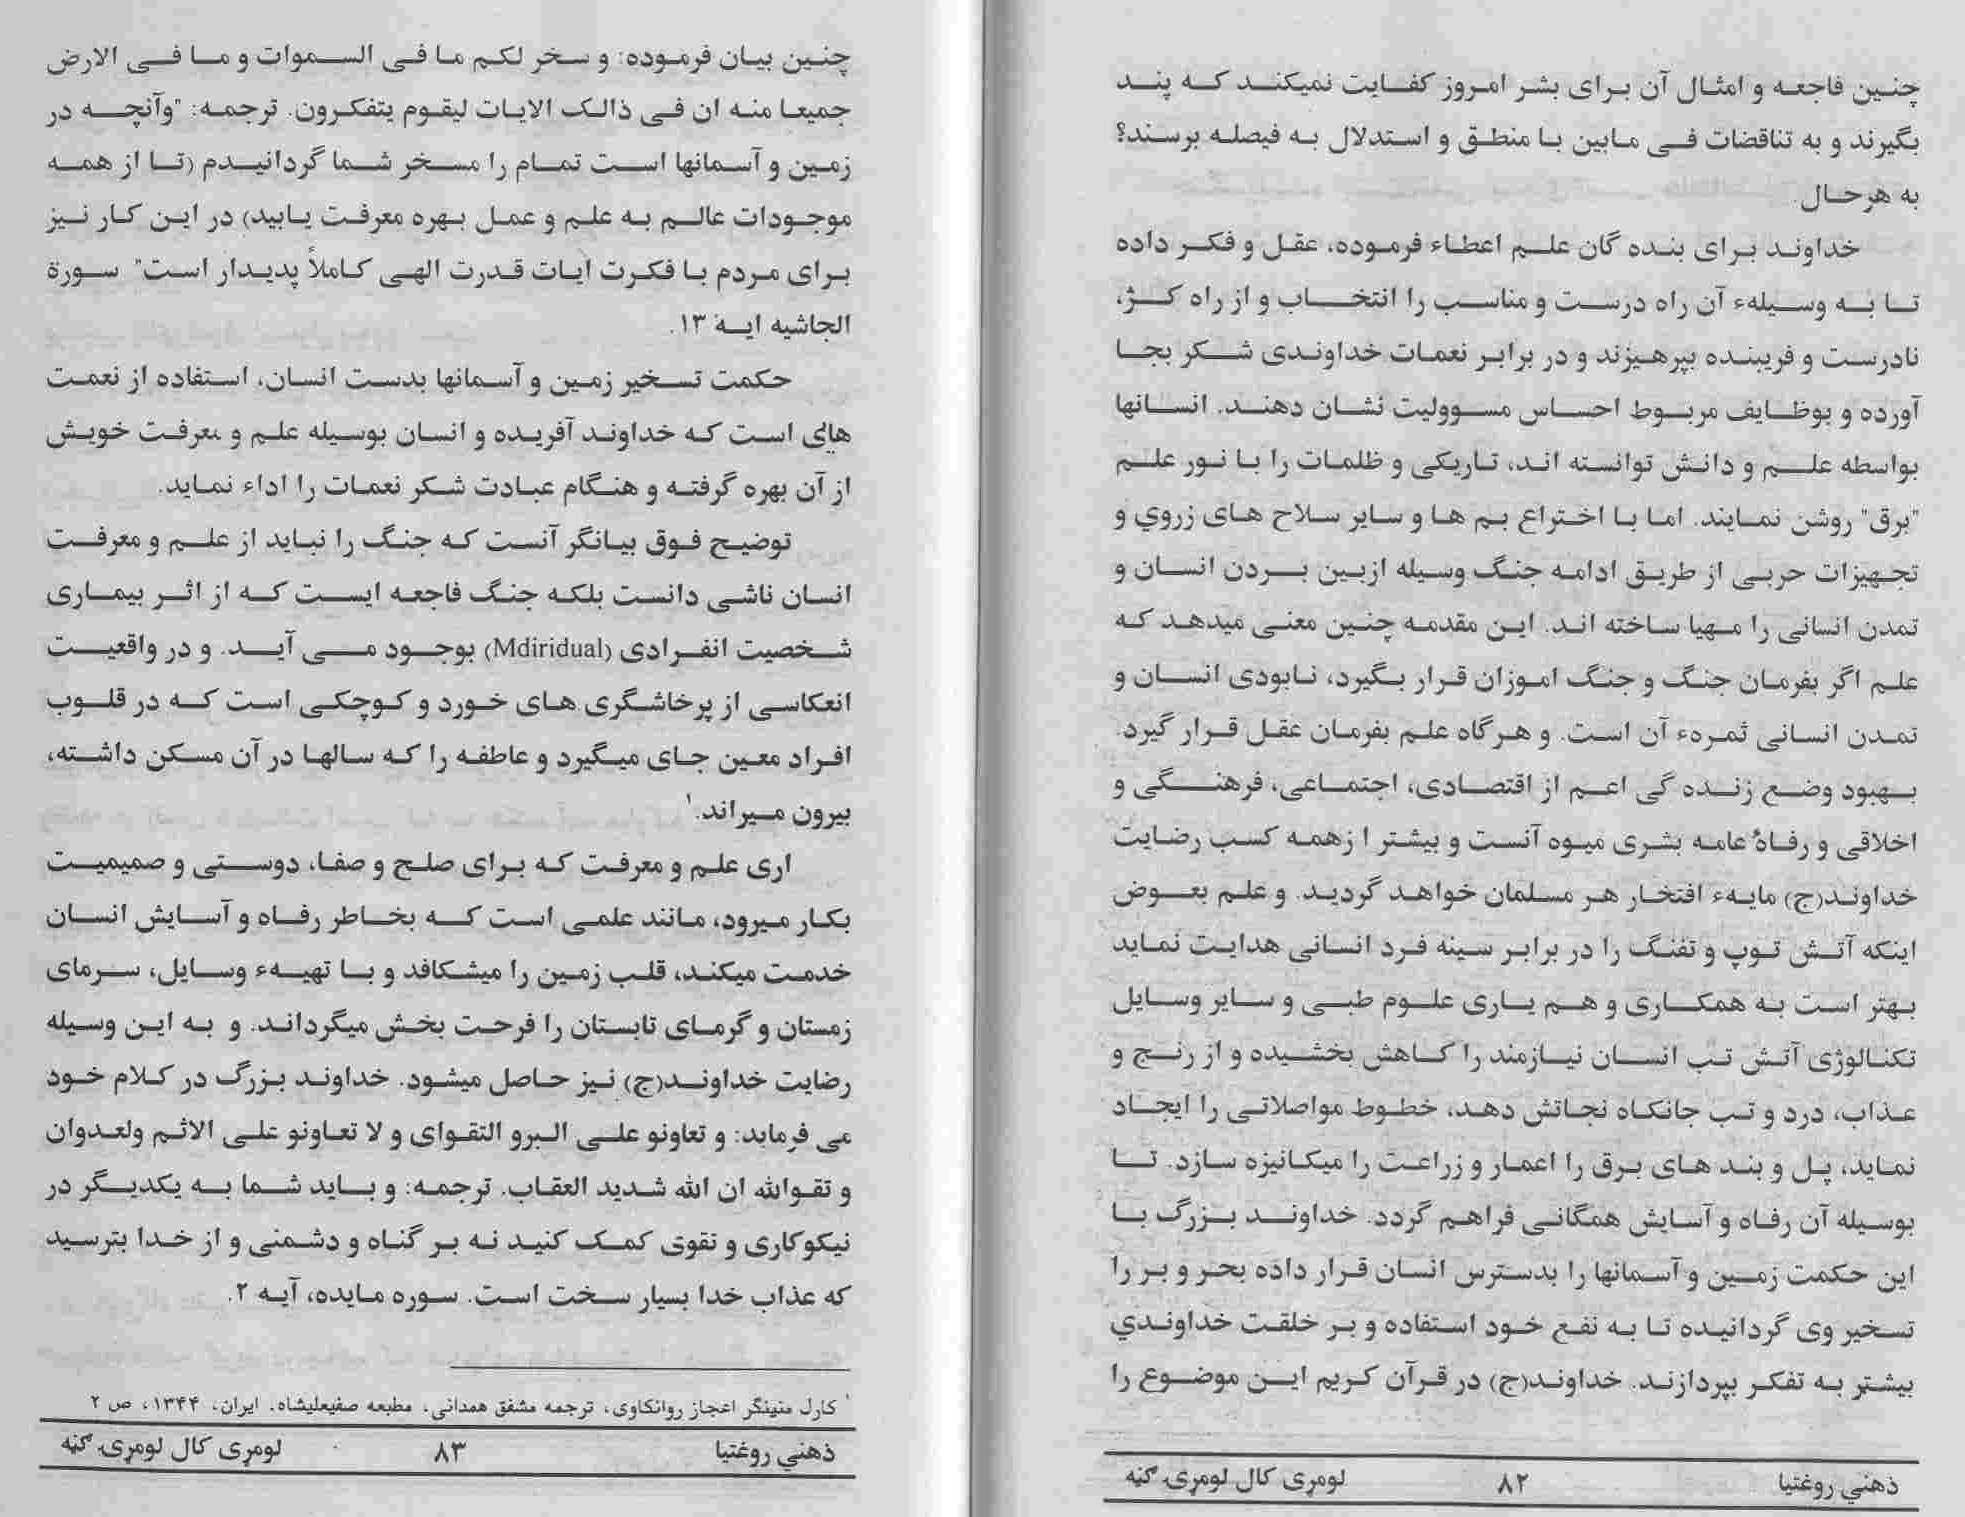 چنین فاجعه و امثال آن برای بشر امروز کفایت نمیکند که پند
بگیرند و به تناقضات فی مابین با منطق و استدلال به فیصله برسند؟
به هرحال.
خداوند برای بنده گان علم اعطاء فرموده، عقل و فکر داده
تا به وسیلهء آن راه درست و مناسب را انتخاب و از راه کژ،
نادرست و فریبنده بپرهیزند و در برابر نعمات خداوندی شکر بجا
آورده و بوظایف مربوط احساس مسوولیت نشان دهند. انسانها
بواسطه علم و دانش توانسته اند، تاریکی و ظلمات را با نور علم
"برق" روشن نمایند. اما با اختراع بم ها و سایر سلاح های زروي و
تجهیزات حربی از طریق ادامه جنگ وسیله ازبین بردن انسان و
تمدن انسانی را مهیا ساخته اند. این مقدمه چنین معنی میدهد که
علم اگر بفرمان جنگ و جنگ اموزان قرار بگیرد، نابودی انسان و
تمدن انسانی ثمرهء آن است. و هرگاه علم بفرمان عقل قرار گیرد.
بهبود وضع زنده گی اعم از اقتصادی، اجتماعی، فرهنگی و
اخلاقی و رفاهٔ عامه بشری میوه آنست و بیشتر ا زهمه کسب رضایت
خداوند(ج) مایهء افتخار هر مسلمان خواهد گردید. و علم بعوض
اینکه آتش توپ و تفنگ را در برابر سینه فرد انسانی هدایت نماید
بهتر است به همکاری و هم یاری علوم طبی و سایر وسایل
تکنالوژی آتش تب انسان نیازمند را کاهش بخشیده و از رنج و
عذاب، درد و تب جانکاه نجاتش دهد، خطوط مواصلاتی را ایجاد
نماید، پل و بند های برق را اعمار و زراعت را میکانیزه سازد. تا
بوسیله آن رفاه و آسایش همگانی فراهم گردد. خداوند بزرگ با
این حکمت زمین و آسمانها را بدسترس انسان قرار داده بحر و بر را
تسخیر وی گردانیده تا به نفع خود استفاده و بر خلقت خداوندي
بیشتر به تفکر بپردازند. خداوند(ج) در قرآن کریم این موضوع را
ذهني روغتیا ۸۲ لومړی کال لومړۍ ګڼه
چنین بیان فرموده: و سخر لکم ما فی السموات و ما فی الارض
جمیعا منه ان فی ذالک الایات لیقوم یتفکرون. ترجمه: "وآنچه در
زمین و آسمانها است تمام را مسخر شما گردانیدم (تا از همه
موجودات عالم به علم و عمل بهره معرفت یابید) در این کار نیز
برای مردم با فکرت ایات قدرت الهی کاملاً پدیدار است" سورة
الجاشیه ایه ۱۳.
حکمت تسخیر زمین و آسمانها بدست انسان، استفاده از نعمت
هاي است که خداوند آفریده و انسان بوسیله علم و معرفت خویش
از آن بهره گرفته و هنگام عبادت شکر نعمات را اداء نماید.
توضیح فوق بیانگر آنست که جنگ را نباید از علم و معرفت
انسان ناشی دانست بلکه جنگ فاجعه ایست که از اثر بیماری
شخصیت انفرادی (Mdiridual) بوجود می آید. و در واقعیت
انعکاسی از پرخاشگری های خورد و کوچکی است که در قلوب
افراد معین جای میگیرد و عاطفه را که سالها در آن مسکن داشته،
بیرون میراند.۱
اری علم و معرفت که برای صلح و صفا، دوستی و صمیمیت
بکار میرود، مانند علمی است که بخاطر رفاه و آسایش انسان
خدمت میکند، قلب زمین را میشکافد و با تهیهء وسایل، سرمای
زمستان و گرمای تابستان را فرحت بخش میگرداند. و به این وسیله
رضایت خداوند(ج) نیز حاصل میشود. خداوند بزرگ در کلام خود
می فرماید: و تعاونو علی البرو التقوای و لا تعاونو علی الاثم ولعدوان
و تقوالله ان الله شدید العقاب. ترجمه: و باید شما به یکدیگر در
نیکوکاری و تقوی کمک کنید نه بر گناه و دشمنی و از خدا بترسید
که عذاب خدا بسیار سخت است. سوره مایده، آیه ۲.
۱ کارل منینگر اعجاز روانکاوی، ترجمه مشفق همدانی، مطبعه صفیعلیشاه. ایران، ۱۳۴۴، ص ۲
ذهني روغتیا ۸۳ لومړی کال لومړۍ ګڼه